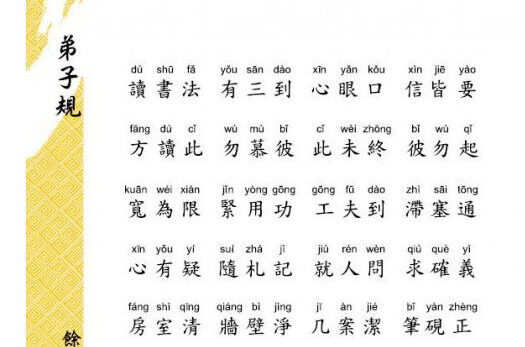 弟子規
dú shū fǎ yǒu sān dào xīn yǎn kǒu xìn jiē yào
讀書法 有三到 心眼口 信皆要
fāng dú cǐ wù mù bǐ cǐ wèi zhōng bǐ wù qǐ
方讀此 勿慕彼 此未終 彼勿起
kuān wéi xiàn jǐn yòng gōng gōng fū dào zhì sāi tōng
寬為限 緊用功 工夫到 滯塞通
xīn yǒu yí suí zhá jì jiù rén wèn qiú què yì
心有疑 隨札記 就人問 求確義
fáng shì qīng qiáng bì jìng jī àn jié bǐ yàn zhèng
房室清 牆壁淨 几案潔 筆硯正
餘